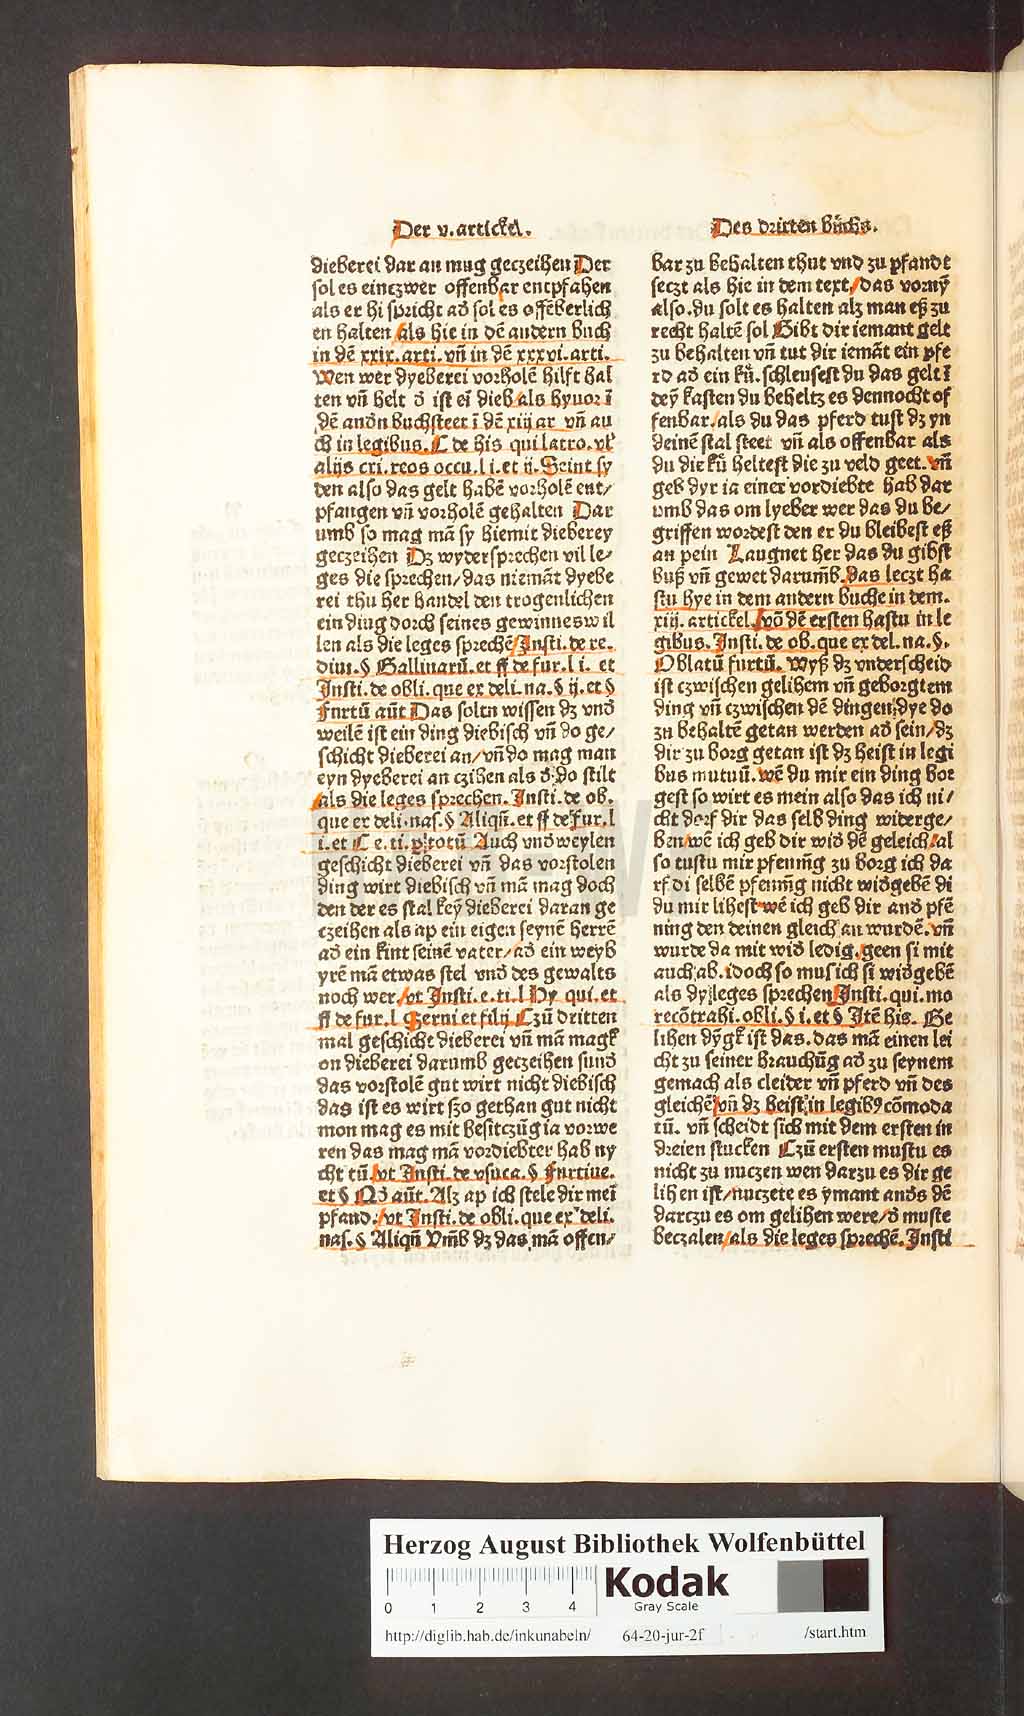 Der v. artickel.
dieberei dar an mug geczeihen Der
sol es eintzwer offenbar entpfahen
als er hi spricht ad̾ sol es offēberlich
en halten / als hie in dē andern buch
in dē xxix. arti. vn̄ in dē xxxvi. arti.
Wen wer dyeberei vorholē hilft hal
ten vn̄ helt d̾ ist ei dieb / als hyuor ī
dē andn̄ buch steet ī dē xiij ar vn̄ au
ch in legibus. C de his qui latro. vl'
alijs cri. reos occu. l i. et ij. Seint sy
den also das gelt habē vorholē ent/
pfangen vn̄ vorholē gehalten Dar
umb so mag mā sy hiemit dieberey
geczeihen Dz wydersprechen vil le/
ges die sprechen / das niemāt dyebe
rei thu her handel den trogenlichen
ein ding dorch seines gewinnes wil
len als die leges sprechē / Insti. de re.
diui. § Gallinarū. et ff de fur. l i. et
Insti. de obli. que ex deli. na. § ij. et §
Furtū aūt Das soltu wissen dz vnd̾
weilē ist ein ding diebisch vn̄ do ge/
schicht dieberei an / vn̄ do mag man
eyn dyeberei an czihen als d̾ do stilt
/ als die leges sprechen. Insti. de ob.
que ex deli. nas. § Aliqn̄. et ff de fur. l
i. et C e. ti. p totū Auch vnd̾weylen
geschicht dieberei vn̄ das vorstolen
ding wirt diebisch vn̄ mā mag doch
den der es stal key dieberei daran ge
czeihen als ap ein eigen seynē herrē
ad̾ ein kint seinē vater / ad̾ ein weyb
yrē mā etwas stel vnd̾ des gewalts
noch wer / vt Insti. e. ti. l Hy qui. et
ff de fur. l Serui et filij Czū dritten
mal geschicht dieberei vn̄ mā magk
on dieberei darumb geczeihen sund̾
das vorstolē gut wirt nicht diebisch
das ist es wirt szo gethan gut nicht
mon mag es mit besitczūg ia vorwe
ren das mag mā vordiebter hab ny
cht tū / vt Insti. de vsuca. § Furtiue.
et § Qd̾ aūt. Alz ap ich stele dir mei
pfand. / vt Insti. de obli. que ex deli.
nas. § Aliqn̄ Vm̄b dz das mā offen/
Des dritten būchs.
bar zu behalten thut vnd zu pfande
seczt als hie in dem text. / das vornȳ
also. du solt es halten alz man eß zu
recht haltē sol Gibt dir iemant gelt
zu behalten vn̄ tut dir iemāt ein pfe
rd ad̾ ein kū. schleusest du das gelt ī
dey kasten du beheltz es dennocht of
fenbar / als du das pferd tust dz yn
deinē stal steet vn̄ als offenbar als
du die kū heltest die zu veld geet. vn̄
geb dyr ia einer vordiebte hab dar
vmb das om lyeber wer das du be/
griffen wordest den er du bleibest eß
an pein Laugnet her das du gibst
buß vn̄ gewet darum̄b. das leczt ha
stu hye in dem andern buche in dem.
xiij. artickel. / vō dē ersten hastu in le
gibus. Insti. de ob. que ex del. na. §.
Oblatū furtū. Wyß dz vnderscheid
ist czwischen gelihem vn̄ geborgtem
ding vn̄ czwischen dē dingen / dye do
zu behaltē getan werden ad̾ sein / dz
dir zu borg getan ist dz heist in legi
bus mutuū. wē du mir ein ding bor
gest so wirt es mein also das ich ni/
cht dorf dir das selb ding widerge/
ben / wē ich geb dir wid̾ dē geleich / al
so tustu mir pfennīg zu borg ich da
rf di selbē pfennīg nicht wid̾gebē di
du mir lihest wē ich geb dir and̾ pfē
ning den deinen gleich an wurdē. vn̄
wurde da mit wid̾ ledig. geen si mit
auch ab. idoch so mus ich si wid̾gebē
als dy leges sprechen / Insti. qui. mo
recōtrahi. obli. § i. et § Itē his. Ge
lihen dȳgk ist das. das mā einen lei
cht zu seiner brauchūg ad̾ zu seynem
gemach als cleider vn̄ pferd vn̄ des
gleichē / vn̄ dz heist in legibꝰ cōmoda
tū. vn̄ scheidt sich mit dem ersten in
dreien stucken Czū ersten mustu es
nicht zu nuczen wen darzu es dir ge
lihen ist / nuczete es ymant and̾s dē
darczu es om gelihen were / d̾ muste
beczalen / als die leges sprechē. Insti
Herzog August Bibliothek Wolfenbüttel
0 1 2 3 4
Kodak
Gray Scale
http://diglib.hab.de/inkunabeln/ 64-20-jur-2f /start.htm